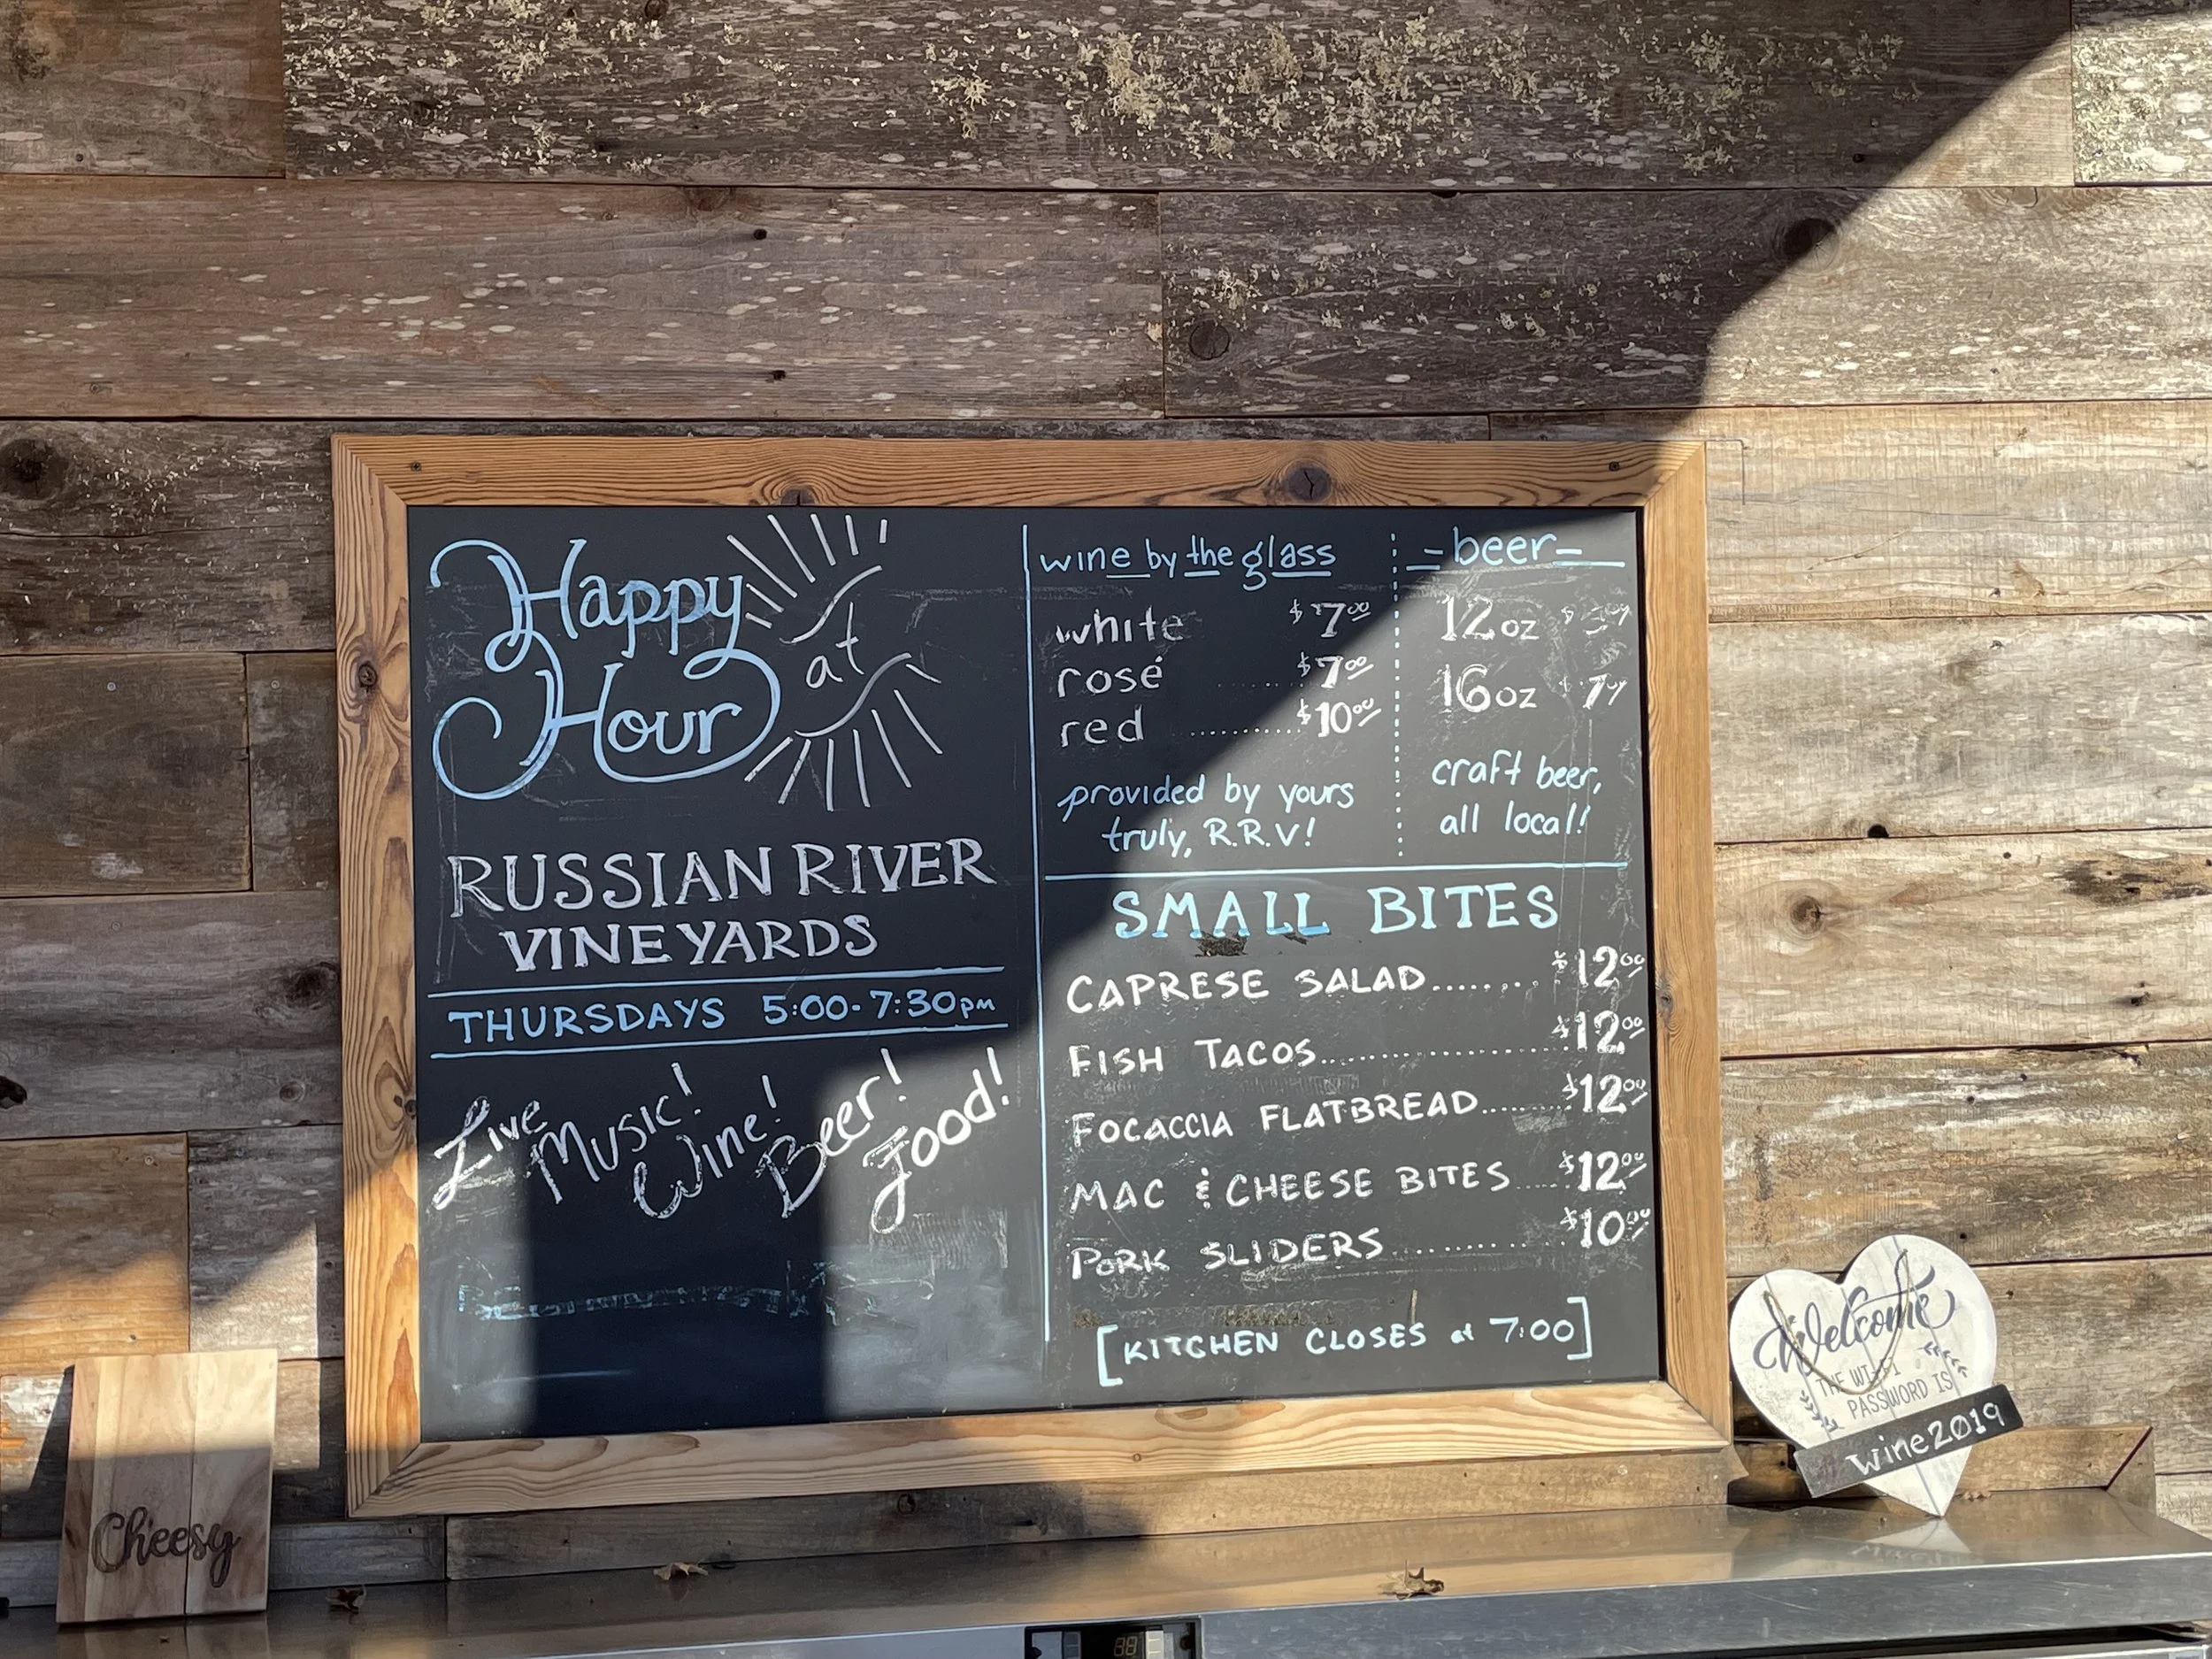 Happy
Hour
at
RUSSIAN RIVER
VINEYARDS
THURSDAYS 5:00-7:30pm
Live Music! Wine! Beer! Food!
wine by the glass
white $7.00
rosé ...... $7.00
red .......... $10.00
provided by yours
truly, R.R.V!
=beer=
12oz $
16oz $7
craft beer,
all local!
SMALL BITES
CAPRESE SALAD........ $12.00
FISH TACOS.................... $12.00
FOCACCIA FLATBREAD........ $12.00
MAC & CHEESE BITES..... $12.00
PORK SLIDERS............ $10.00
[KITCHEN CLOSES at 7:00]
Cheesy
Welcome
THE WI-FI
PASSWORD IS
wine2019